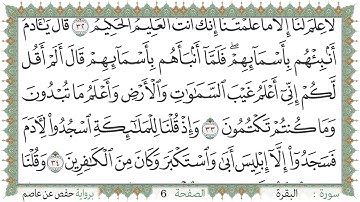 لَا عِلْمَ لَنَآ إِلَّا مَا عَلَّمْتَنَآ إِنَّكَ أَنتَ ٱلْعَلِيمُ ٱلْحَكِيمُ ٣٢ قَالَ يَٰٓـَٔادَمُ
أَنۢبِئْهُم بِأَسْمَآئِهِمْ ۖ فَلَمَّآ أَنۢبَأَهُم بِأَسْمَآئِهِمْ قَالَ أَلَمْ أَقُل
لَّكُمْ إِنِّىٓ أَعْلَمُ غَيْبَ ٱلسَّمَٰوَٰتِ وَٱلْأَرْضِ وَأَعْلَمُ مَا تُبْدُونَ
وَمَا كُنتُمْ تَكْتُمُونَ ٣٣ وَإِذْ قُلْنَا لِلْمَلَٰٓئِكَةِ ٱسْجُدُوا۟ لِءَادَمَ
فَسَجَدُوٓا۟ إِلَّآ إِبْلِيسَ أَبَىٰ وَٱسْتَكْبَرَ وَكَانَ مِنَ ٱلْكَٰفِرِينَ ٣٤ وَقُلْنَا
سورة : البقرة الصفحة 6 برواية حفص عن عاصم